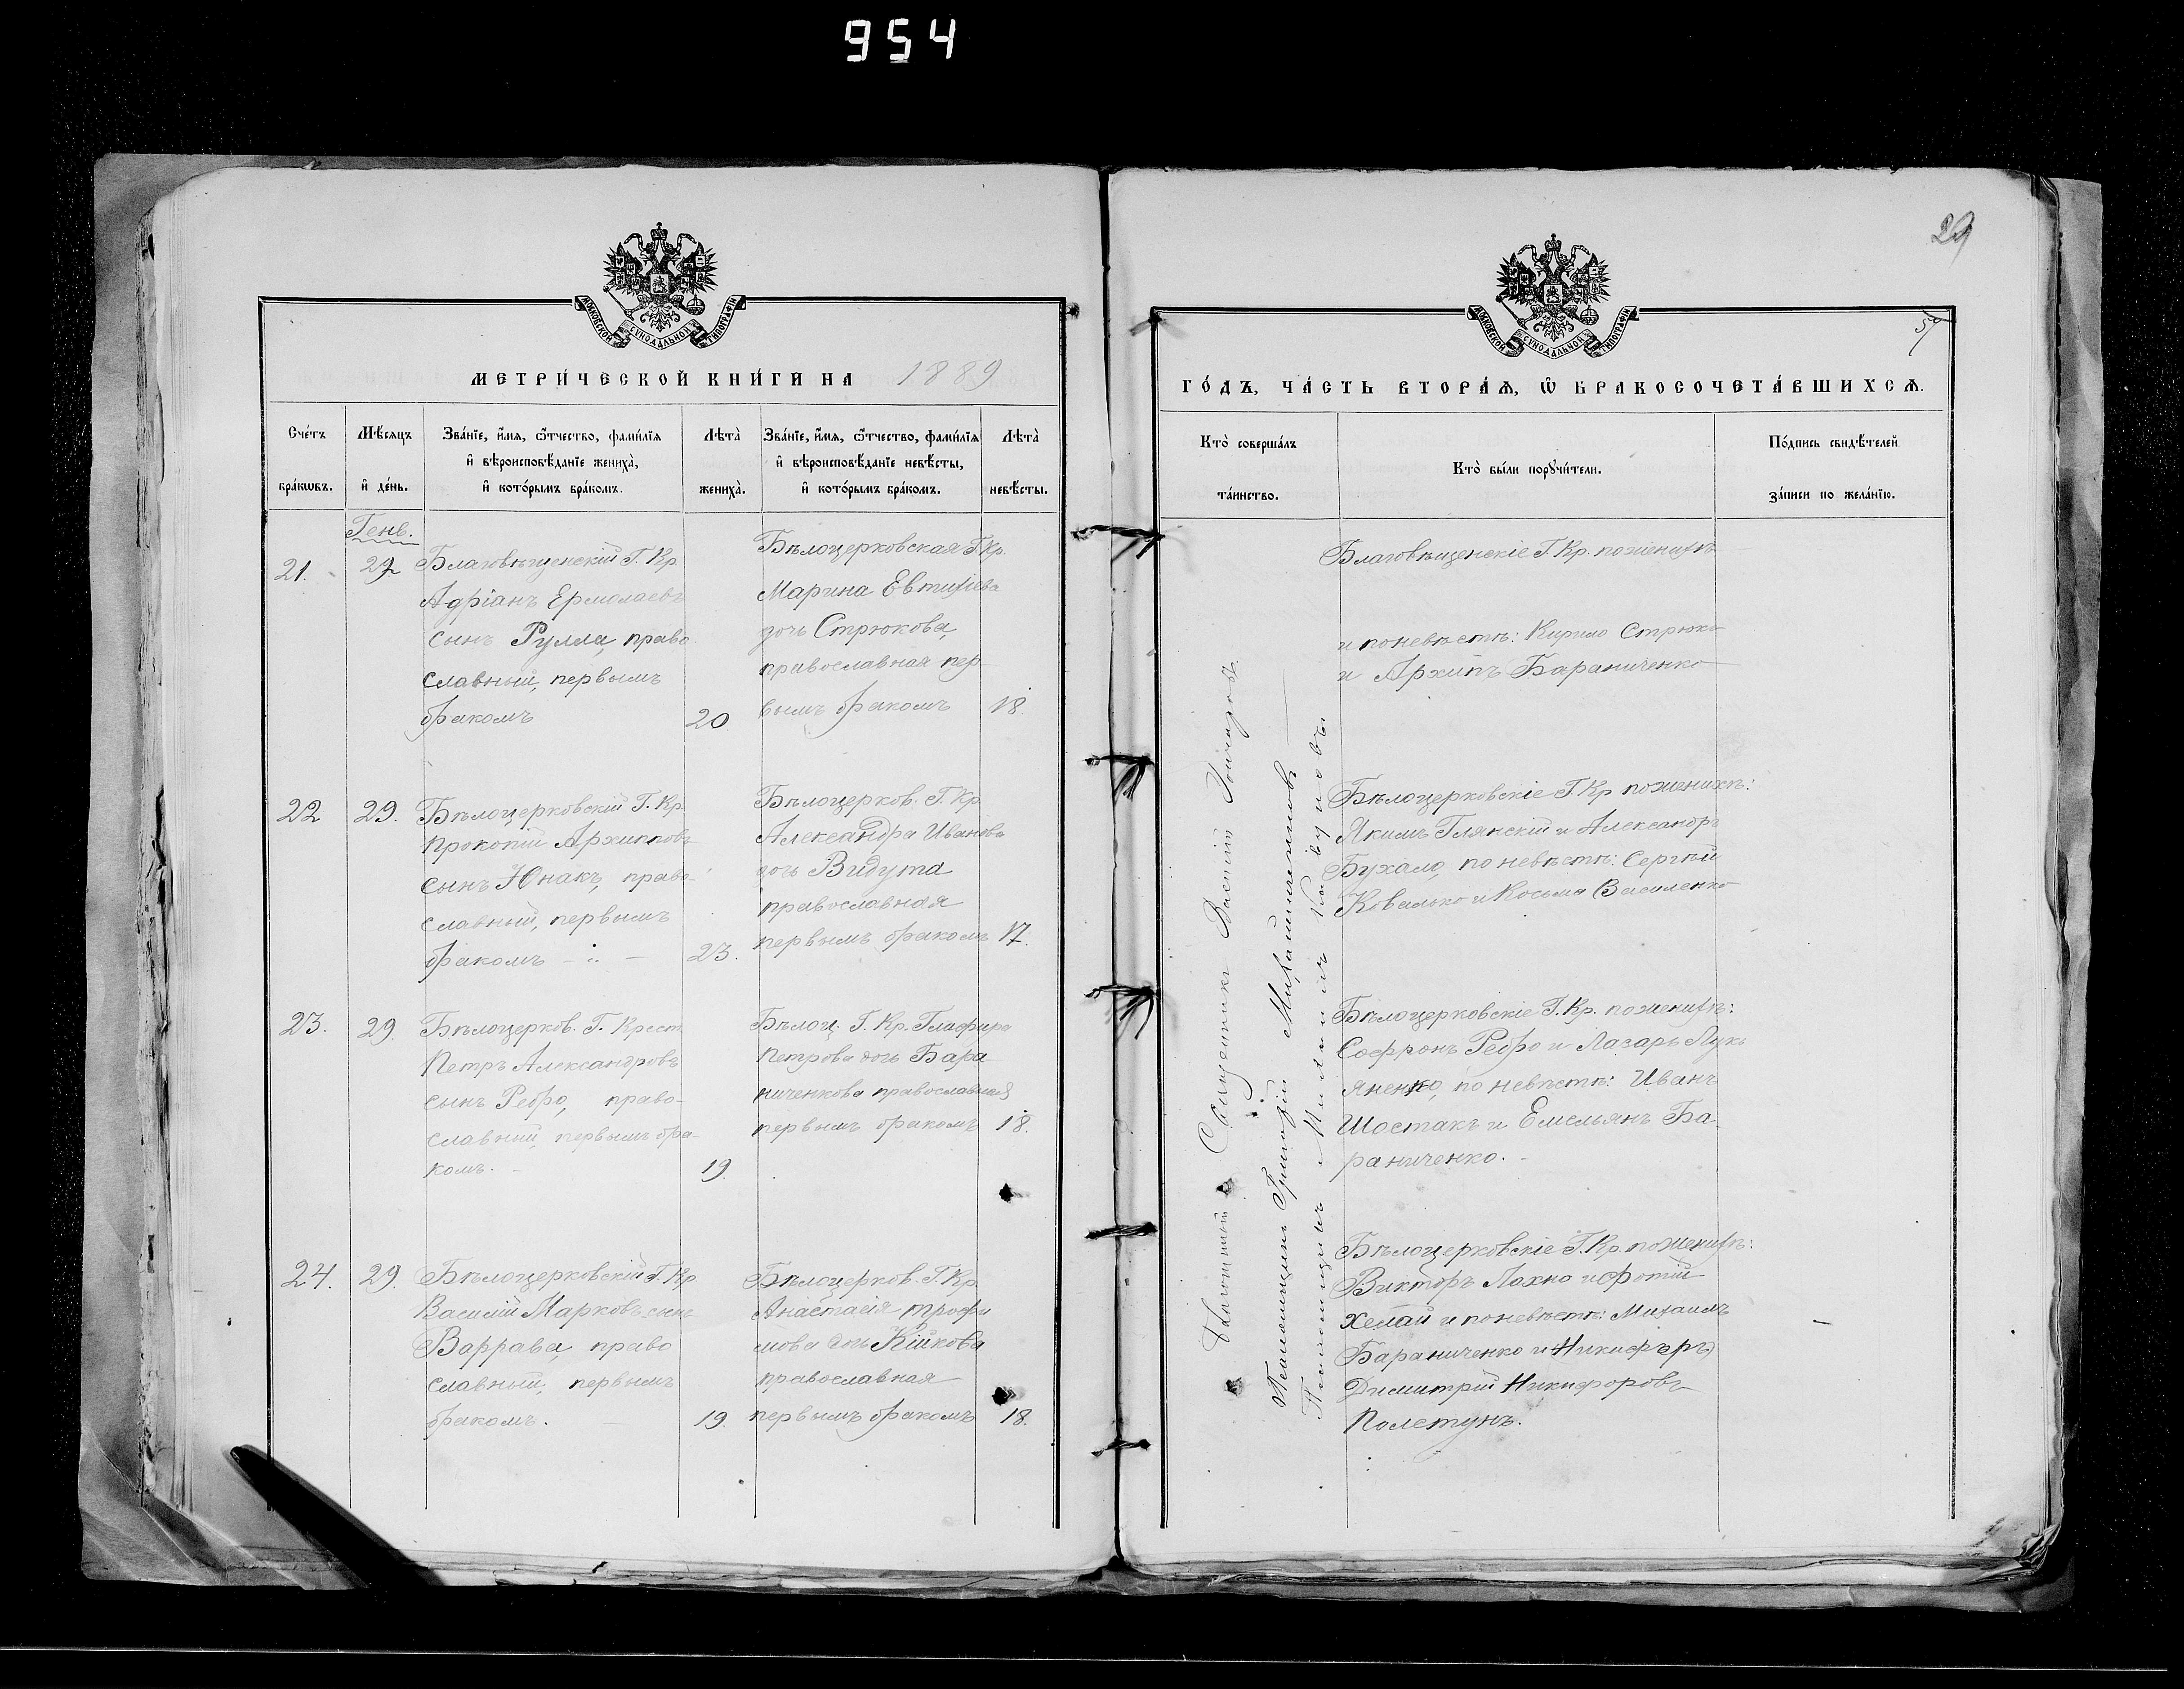 954
29
МОСКОВСКОЙ СѴНОДАЛЬНОЙ ТИПОГРАФІИ
МЕТРИ́ЧЕСКОЙ КНИ́ГИ НА 1889
Сче́тъ бра́кѡвъ.
Мѣ́сяцъ и҆ де́нь.
Зва́нїе, и҆́мѧ, ѻ҆́тчество, фами́лїѧ
и҆ вѣроисповѣ́данїе жениха̀,
и҆ кото́рымъ бра́комъ.
Лѣта̀ жениха̀.
Зва́нїе, и҆́мѧ, ѻ҆́тчество, фами́лїѧ
и҆ вѣроисповѣ́данїе невѣ́сты,
и҆ кото́рымъ бра́комъ.
Лѣта̀ невѣ́сты.
Генв.
21. 29
Благовѣщенскій Г. Кр.
Адріанъ Ермолаевъ
сынъ Рулла, право
славный, первымъ
бракомъ
20
Бѣлоцерковская Г. Кр.
Марина Евтихіева
дочь Стрюкова,
православная пер
вымъ бракомъ
18.
22 29.
Бѣлоцерковскій Г. Кр.
Прокопій Архиповъ
сынъ Юнакъ, право-
славный, первымъ
бракомъ
23.
Бѣлоцерков. Г. Кр.
Александра Иванова
дочь Видута
православная
первымъ бракомъ
17.
23. 29.
Бѣлоцерков. Г. Крест.
Петръ Александровъ
сынъ Ребро, право-
славный, первымъ бра-
комъ.
19.
Бѣлоц. Г. Кр. Глафира
Петрова дочь Бара
ниченкова православная
первымъ бракомъ
18.
24. 29.
Бѣлоцерковскій Г. Кр.
Василій Марковъ сынъ
Варрава, право
славный, первымъ
бракомъ.
19.
Бѣлоцерков. Г. Кр.
Анастасія Трофи
мова дочь Кійкова
православная
первымъ бракомъ
18.
МОСКОВСКОЙ СѴНОДАЛЬНОЙ ТИПОГРАФІИ
ГО́ДЪ, ЧА́СТЬ ВТОРА́Ѧ, Ѡ҆ БРАКОСОЧЕТА́ВШИХСѦ.
Кто̀ соверша́лъ та́инство.
Кто̀ бы́ли порꙋчи́тели.
По́дпись свидѣ́телей
за́писи по жела́нїю.
Священникъ Василій
Псаломщикъ Григорій
Псаломщикъ
Благовѣщенскіе Г. Кр. по женихѣ
и по невѣстѣ: Кирило Стрюко
и Архипъ Бараниченко
Бѣлоцерковскіе Г. Кр. по женихѣ:
Якимъ Глянскій и Александръ
Бухало, по невѣстѣ: Сергѣй
Ковалько и Косьма Василенко
Бѣлоцерковскіе Г. Кр. по женихѣ:
Софронъ Ребро и Лазарь Лукь
яненко, по невѣстѣ: Иванъ
Шостакъ и Емельянъ Ба
раниченко.
Бѣлоцерковскіе Г. Кр. по женихѣ:
Викторъ Лахно и Фотій
Хелай и по невѣстѣ: Михаилъ
Бараниченко и Никифоръ
Димитрій Никифоровъ
Полетунъ.